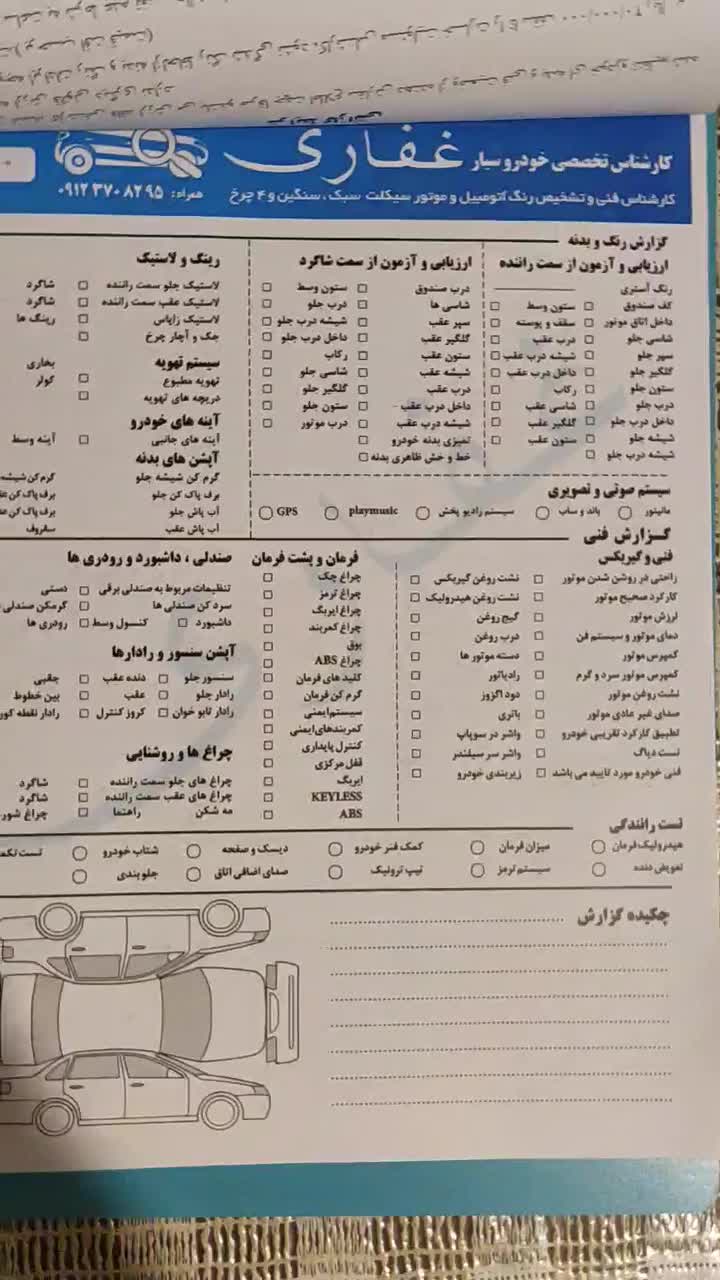 کارشناس تخصصی خودرو سیار غفاری
کارشناس فنی و تشخیص رنگ اتومبیل و موتور سیکلت سبک، سنگین و ۴ چرخ
همراه: ۰۹۱۲ ۳۷۰ ۸۲ ۹۵
گزارش رنگ و بدنه
ارزیابی و آزمون از سمت راننده
رنگ آستری
کف صندوق
ستون وسط
داخل اتاق موتور
سقف و پوسته
شاسی جلو
درب عقب
سپر جلو
شیشه درب عقب
گلگیر جلو
داخل درب عقب
ستون جلو
رکاب
درب جلو
شاسی عقب
داخل درب جلو
گلگیر عقب
شیشه جلو
ستون عقب
شیشه درب جلو
ارزیابی و آزمون از سمت شاگرد
درب صندوق
ستون وسط
شاسی ها
درب جلو
سپر عقب
شیشه درب جلو
گلگیر عقب
داخل درب جلو
ستون عقب
رکاب
شیشه عقب
شاسی جلو
درب عقب
گلگیر جلو
داخل درب عقب
ستون جلو
شیشه درب عقب
درب موتور
تمیزی بدنه خودرو
خط و خش ظاهری بدنه
رینگ و لاستیک
لاستیک جلو سمت راننده
شاگرد
لاستیک عقب سمت راننده
شاگرد
لاستیک زاپاس
رینگ ها
جک و آچار چرخ
سیستم تهویه
بخاری
تهویه مطبوع
کولر
دریچه های تهویه
آینه های خودرو
آینه های جانبی
آینه وسط
آپشن های بدنه
گرم کن شیشه جلو
گرم کن شیشه
برف پاک کن جلو
برف پاک کن
آب پاش جلو
برف پاک کن
آب پاش عقب
سانروف
سیستم صوتی و تصویری
مانیتور
باند و ساب
سیستم رادیو پخش
playmusic
GPS
گزارش فنی
فنی و گیربکس
راحتی در روشن شدن موتور
نشت روغن گیربکس
کارکرد صحیح موتور
نشت روغن هیدرولیک
لرزش موتور
گیج روغن
دمای موتور و سیستم فن
درب روغن
کمپرس موتور
دسته موتور ها
کمپرس موتور سرد و گرم
رادیاتور
نشت روغن موتور
دود اگزوز
صدای غیر عادی موتور
باتری
تطبیق کارکرد تقریبی خودرو
واشر در سوپاپ
تست دیاگ
واشر سر سیلندر
فنی خودرو مورد تایید می باشد
زیربندی خودرو
فرمان و پشت فرمان
چراغ چک
چراغ ترمز
چراغ ایربگ
چراغ کمربند
بوق
چراغ ABS
کلید های فرمان
گرم کن فرمان
سیستم ایمنی
کمربندهای ایمنی
کنترل پایداری
قفل مرکزی
ایربگ
KEYLESS
ABS
صندلی ، داشبورد و رودری ها
تنظیمات مربوط به صندلی برقی
دستی
سرد کن صندلی ها
گرمکن صندلی
داشبورد
کنسول وسط
رودری ها
آپشن سنسور و رادارها
سنسور جلو
دنده عقب
جقبی
رادار جلو
عقب
بین خطوط
رادار تابلو خوان
کروز کنترل
رادار نقطه کور
چراغ ها و روشنایی
چراغ های جلو سمت راننده
شاگرد
چراغ های عقب سمت راننده
شاگرد
مه شکن
راهنما
چراغ
تست رانندگی
هیدرولیک فرمان
میزان فرمان
کمک فنر خودرو
دیسک و صفحه
شتاب خودرو
تعویض دنده
سیستم ترمز
تیپ ترونیک
صدای اضافی اتاق
جلوبندی
چکیده گزارش